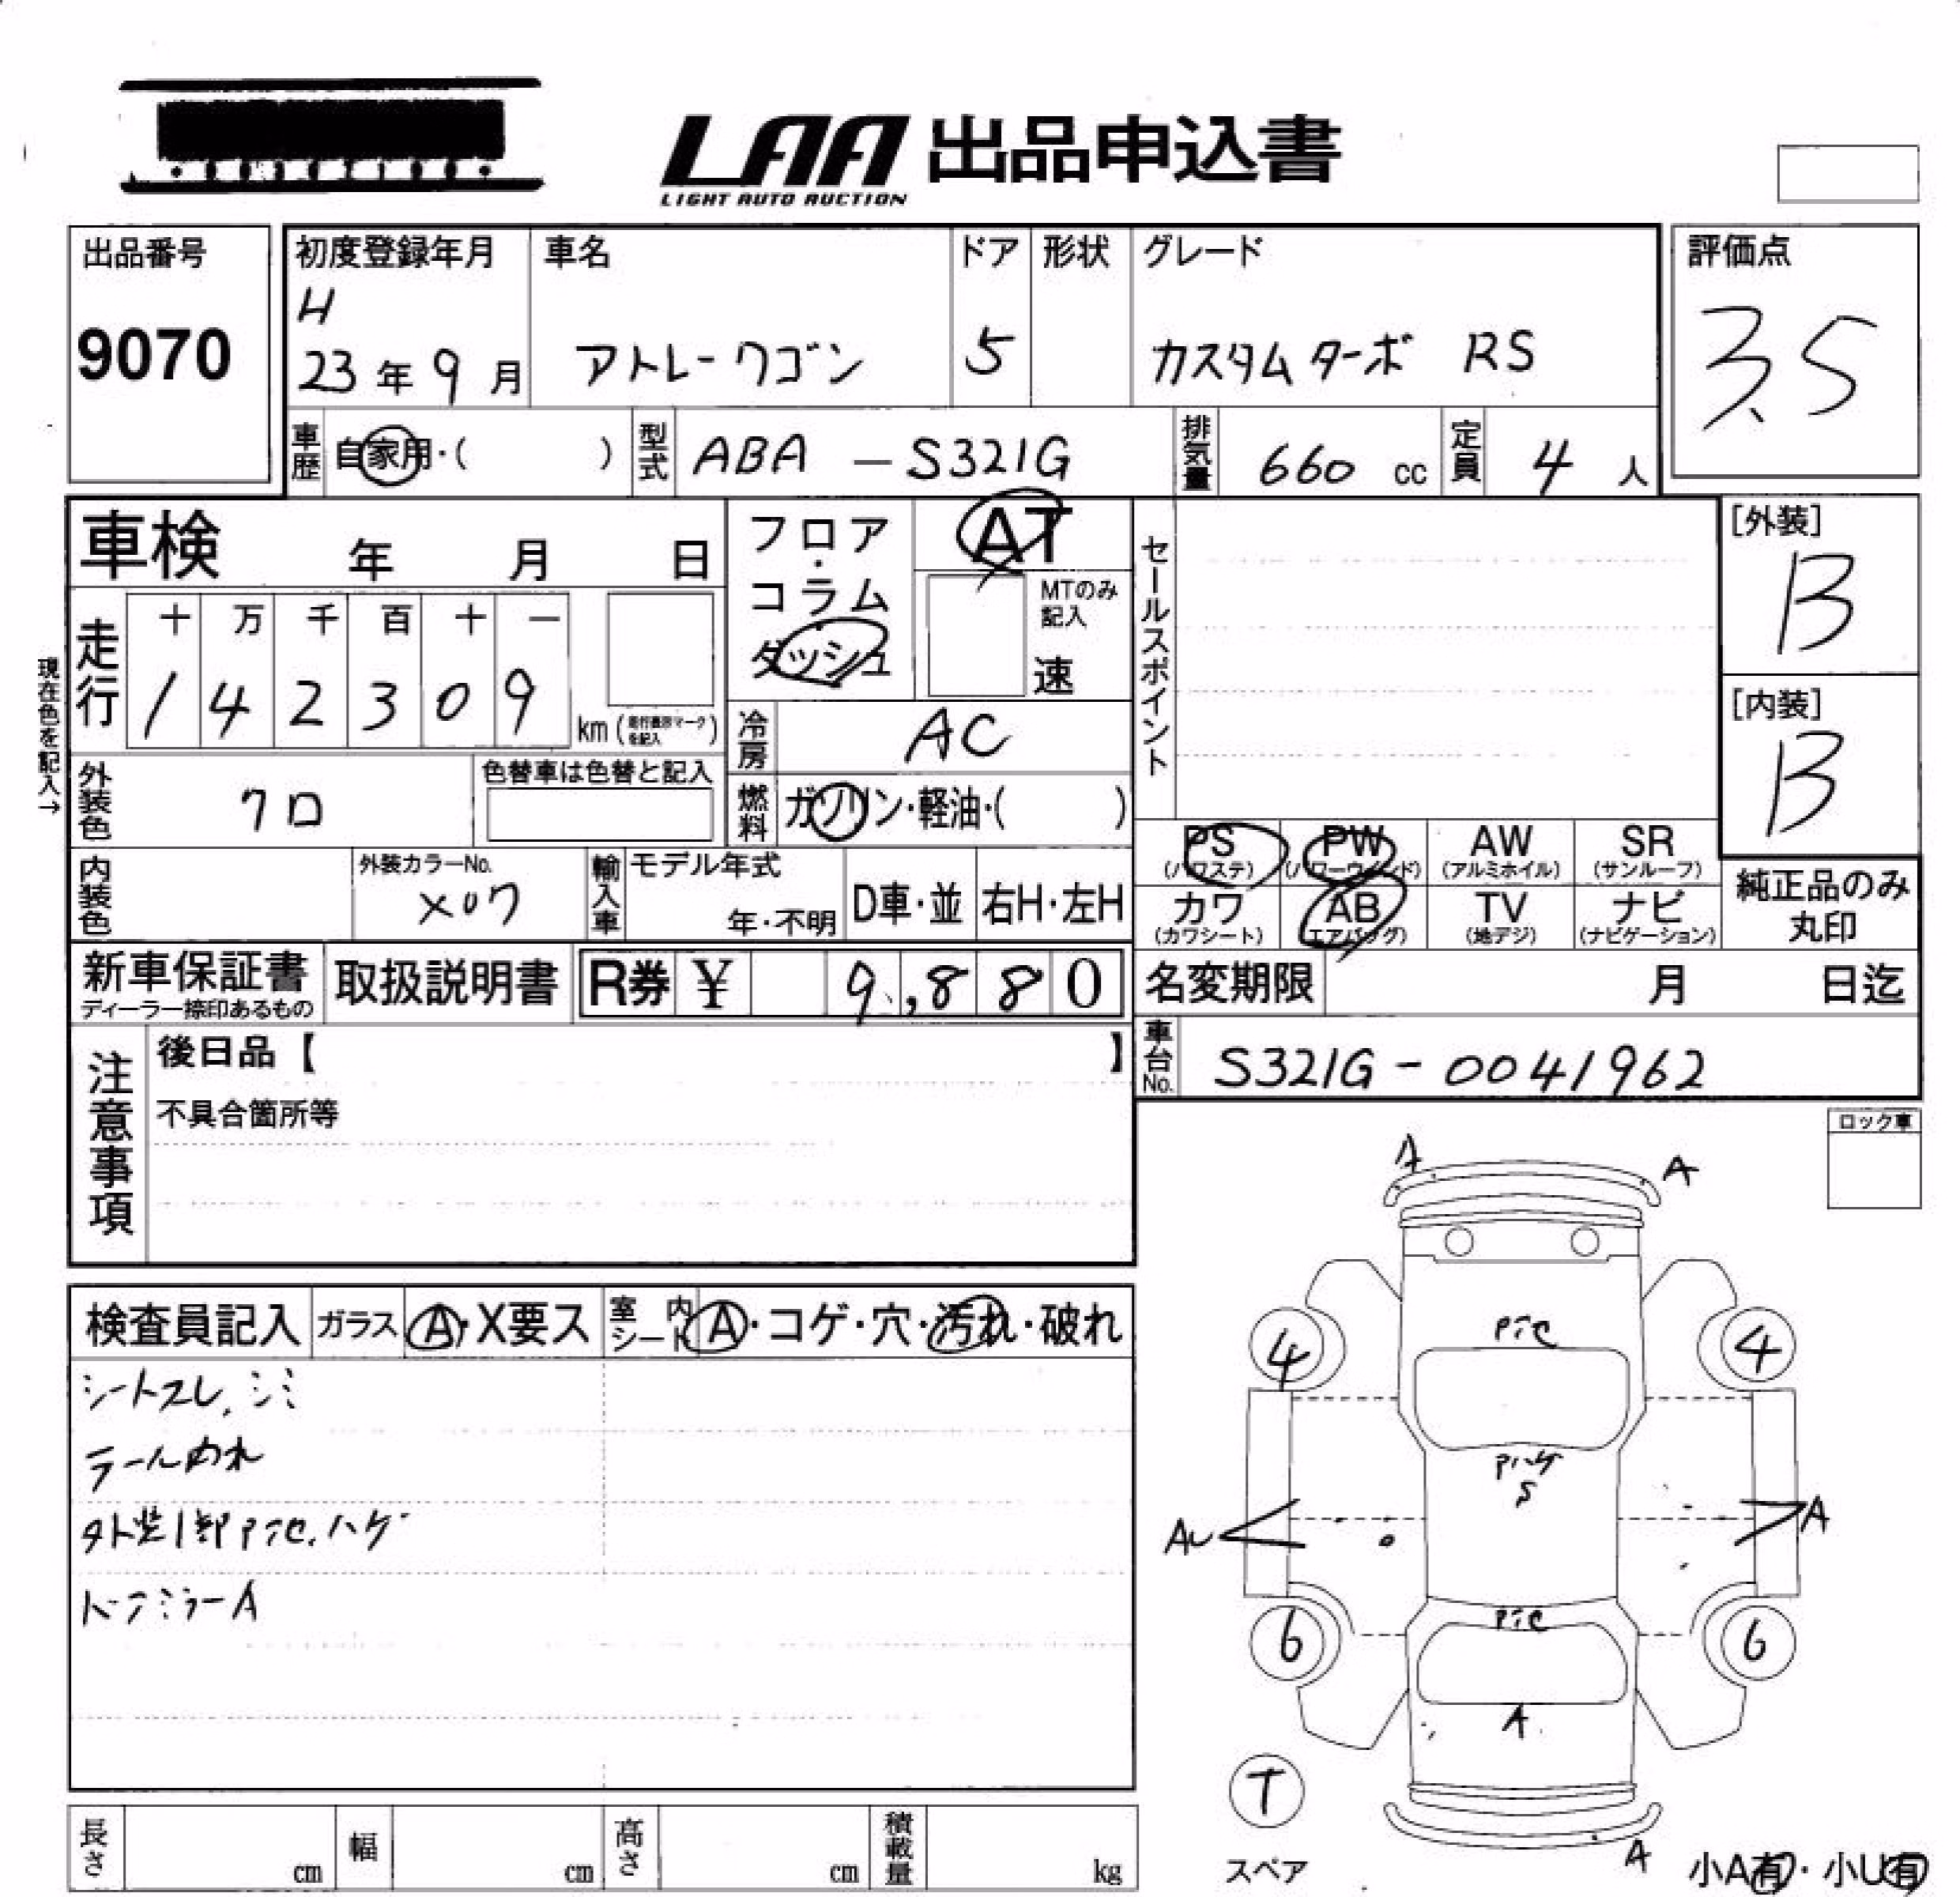 LAA 出品申込書
LIGHT AUTO AUCTION
出品番号
9070
初度登録年月
H
23年 9月
車名
アトレーワゴン
ドア
5
形状
グレード
カスタムターボ RS
評価点
3.5
車歴 自家用・( )
型式 ABA - S321G
排気量 660 cc
定員 4 人
車検 年 月 日
フロア・コラム・ダッシュ
AT
MTのみ記入
速
セールスポイント
[外装]
B
[内装]
B
現在色を記入→
走行
十 万 千 百 十 一
1 4 2 3 0 9 km (走行表示マークを記入)
冷房 AC
外装色 クロ
色替車は色替と記入
燃料 ガソリン・軽油・( )
PS (パワステ)
PW (パワーウィンド)
AW (アルミホイル)
SR (サンルーフ)
カワ (カワシート)
AB (エアバッグ)
TV (地デジ)
ナビ (ナビゲーション)
純正品のみ丸印
内装色
外装カラーNo.
X07
輸入車
モデル年式
年・不明
D車・並
右H・左H
新車保証書
ディーラー捺印あるもの
取扱説明書
R券 ¥ 9,880
名変期限 月 日迄
車台No. S321G-0041962
注意事項
後日品【 】
不具合箇所等
ロック車
検査員記入
ガラス A・X要ス
室内シート A・コゲ・穴・汚れ・破れ
シートスレ, シミ
テールわれ
外装1部Pチヒ, ハゲ
ドアミラーA
A
A
Pチヒ
4
4
Pハゲ
S
AU
A
Pチヒ
6
6
A
T
スペア
A
小A有・小U有
長さ cm
幅 cm
高さ cm
積載量 kg